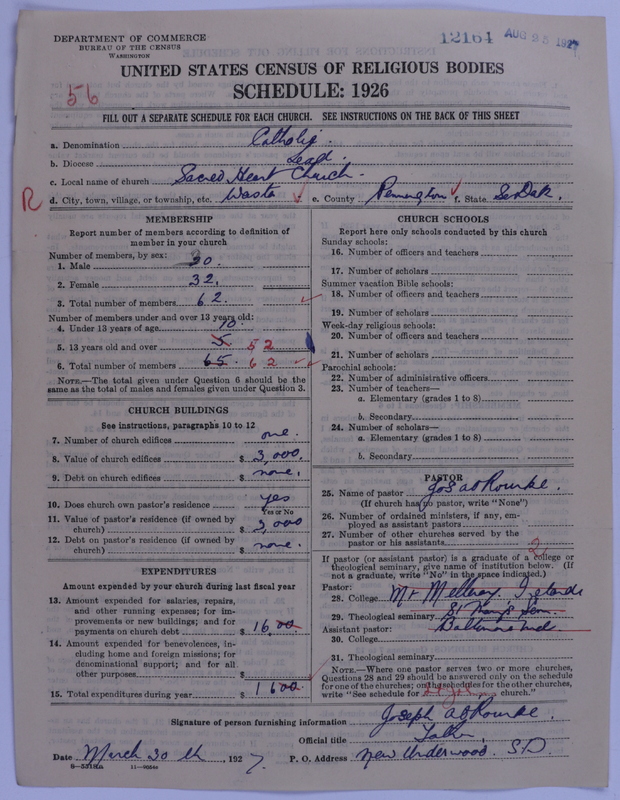 DEPARTMENT OF COMMERCE
BUREAU OF THE CENSUS
WASHINGTON
12164 AUG 25 1927
UNITED STATES CENSUS OF RELIGIOUS BODIES
SCHEDULE: 1926
56
FILL OUT A SEPARATE SCHEDULE FOR EACH CHURCH. SEE INSTRUCTIONS ON THE BACK OF THIS SHEET
a. Denomination Catholic.
b. Diocese Lead.
c. Local name of church Sacred Heart Church.
R d. City, town, village, or township, etc. Wasta e. County Pennington f. State So Dak.
MEMBERSHIP
Report number of members according to definition of member in your church
Number of members, by sex:
1. Male 30.
2. Female 32.
3. Total number of members 62.
Number of members under and over 13 years old:
4. Under 13 years of age 10.
5. 13 years old and over 5 52
6. Total number of members 65. 62
NOTE.—The total given under Question 6 should be the same as the total of males and females given under Question 3.
CHURCH BUILDINGS
See instructions, paragraphs 10 to 12
7. Number of church edifices one.
8. Value of church edifices $ 3,000.
9. Debt on church edifices $ none.
10. Does church own pastor's residence yes
Yes or No
11. Value of pastor's residence (if owned by church) $ 3,000
12. Debt on pastor's residence (if owned by church) $ none.
EXPENDITURES
Amount expended by your church during last fiscal year
13. Amount expended for salaries, repairs, and other running expenses; for improvements or new buildings; and for payments on church debt $ 1600
14. Amount expended for benevolences, including home and foreign missions; for denominational support; and for all other purposes $
15. Total expenditures during year $ 1600.
CHURCH SCHOOLS
Report here only schools conducted by this church
Sunday schools:
16. Number of officers and teachers
17. Number of scholars
Summer vacation Bible schools:
18. Number of officers and teachers
19. Number of scholars
Week-day religious schools:
20. Number of officers and teachers
21. Number of scholars
Parochial schools:
22. Number of administrative officers
23. Number of teachers—
a. Elementary (grades 1 to 8)
b. Secondary
24. Number of scholars—
a. Elementary (grades 1 to 8)
b. Secondary
PASTOR
25. Name of pastor Jos a O Rourke.
(If church has no pastor, write "None")
26. Number of ordained ministers, if any, employed as assistant pastors
27. Number of other churches served by the pastor or his assistants 2
If pastor (or assistant pastor) is a graduate of a college or theological seminary, give name of institution below. (If not a graduate, write "No" in the space indicated.)
Pastor:
28. College Mt Melleray. Ireland
29. Theological seminary St Mary's Sem.
Assistant pastor: Baltimore Md.
30. College
31. Theological seminary
NOTE.—Where one pastor serves two or more churches, Questions 28 and 29 should be answered only on the schedule for one of the churches; on the schedules for the other churches, write "See schedule for church."
Signature of person furnishing information Joseph A O Rourke.
Official title
Date March 30 th, 1927. P. O. Address New Underwood. S.D.